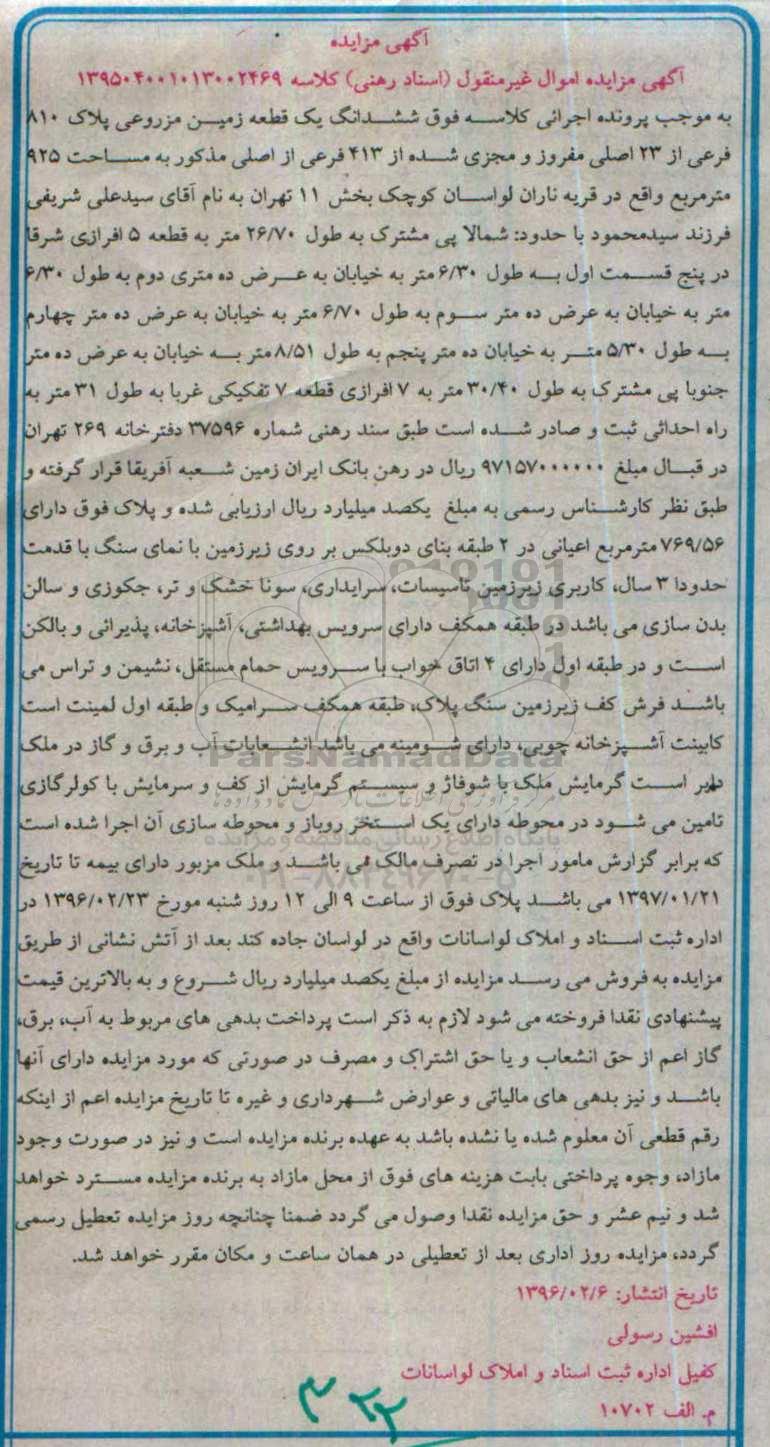 آگهی مزایده
آگهی مزایده اموال غیرمنقول (اسناد رهنی) کلاسه ۱۳۹۵۰۴۰۰۱۰۱۳۰۰۲۴۶۹
به موجب پرونده اجرائی کلاسه فوق ششدانگ یک قطعه زمین مزروعی پلاک ۸۱۰
فرعی از ۲۳ اصلی مفروز و مجزی شده از ۴۱۳ فرعی از اصلی مذکور به مساحت ۹۲۵
مترمربع واقع در قریه ناران لواسان کوچک بخش ۱۱ تهران به نام آقای سیدعلی شریفی
فرزند سیدمحمود با حدود: شمالا پی مشترک به طول ۲۶/۷۰ متر به قطعه ۵ افرازی شرقا
در پنج قسمت اول به طول ۶/۳۰ متر به خیابان به عرض ده متری دوم به طول ۶/۳۰
متر به خیابان به عرض ده متر سوم به طول ۶/۷۰ متر به خیابان به عرض ده متر چهارم
به طول ۵/۳۰ متر به خیابان ده متر پنجم به طول ۸/۵۱ متر به خیابان به عرض ده متر
جنوبا پی مشترک به طول ۳۰/۴۰ متر به ۷ افرازی قطعه ۷ تفکیکی غربا به طول ۳۱ متر به
راه احداثی ثبت و صادر شده است طبق سند رهنی شماره ۳۷۵۹۶ دفترخانه ۲۶۹ تهران
در قبال مبلغ ۹۷۱۵۷۰۰۰۰۰۰ ریال در رهن بانک ایران زمین شعبه آفریقا قرار گرفته و
طبق نظر کارشناس رسمی به مبلغ یکصد میلیارد ریال ارزیابی شده و پلاک فوق دارای
۷۶۹/۵۶ مترمربع اعیانی در ۲ طبقه بنای دوبلکس بر روی زیرزمین با نمای سنگ با قدمت
حدودا ۳ سال، کاربری زیرزمین تاسیسات، سرایداری، سونا خشک و تر، جکوزی و سالن
بدن سازی می باشد در طبقه همکف دارای سرویس بهداشتی، آشپزخانه، پذیرائی و بالکن
است و در طبقه اول دارای ۴ اتاق خواب با سرویس حمام مستقل، نشیمن و تراس می
باشد فرش کف زیرزمین سنگ پلاک، طبقه همکف سرامیک و طبقه اول لمینت است
کابینت آشپزخانه چوبی، دارای شومینه می باشد انشعابات آب و برق و گاز در ملک
دایر است گرمایش ملک با شوفاژ و سیستم گرمایش از کف و سرمایش با کولرگازی
تامین می شود در محوطه دارای یک استخر روباز و محوطه سازی آن اجرا شده است
که برابر گزارش مامور اجرا در تصرف مالک می باشد و ملک مزبور دارای بیمه تا تاریخ
۱۳۹۷/۰۱/۲۱ می باشد پلاک فوق از ساعت ۹ الی ۱۲ روز شنبه مورخ ۱۳۹۶/۰۲/۲۳ در
اداره ثبت اسناد و املاک لواسانات واقع در لواسان جاده کند بعد از آتش نشانی از طریق
مزایده به فروش می رسد مزایده از مبلغ یکصد میلیارد ریال شروع و به بالاترین قیمت
پیشنهادی نقدا فروخته می شود لازم به ذکر است پرداخت بدهی های مربوط به آب، برق،
گاز اعم از حق انشعاب و یا حق اشتراک و مصرف در صورتی که مورد مزایده دارای آنها
باشد و نیز بدهی های مالیاتی و عوارض شهرداری و غیره تا تاریخ مزایده اعم از اینکه
رقم قطعی آن معلوم شده یا نشده باشد به عهده برنده مزایده است و نیز در صورت وجود
مازاد، وجوه پرداختی بابت هزینه های فوق از محل مازاد به برنده مزایده مسترد خواهد
شد و نیم عشر و حق مزایده نقدا وصول می گردد ضمنا چنانچه روز مزایده تعطیل رسمی
گردد، مزایده روز اداری بعد از تعطیلی در همان ساعت و مکان مقرر خواهد شد.
تاریخ انتشار: ۱۳۹۶/۰۲/۶
افشین رسولی
کفیل اداره ثبت اسناد و املاک لواسانات
م. الف ۱۰۷۰۲
ParsNamadData
پایگاه اطلاع رسانی مناقصه و مزایده